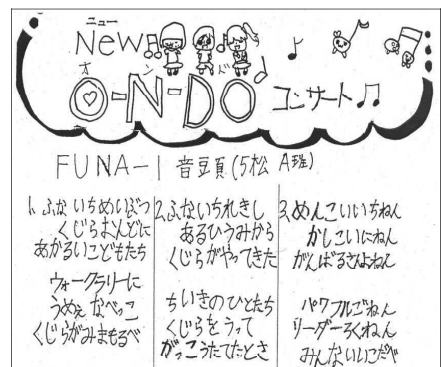 ニュー
New
オンド
O-N-DO コンサート♫
FUNA-1 音頭(5松 A班)
1、ふないちめいぶつ
くじらおんどに
あかるいこどもたち
ウォークラリーに
うめぇ なべっこ
くじらがみまもるべ
2、ふないちれきし
あるひうみから
くじらがやってきた
ちいきのひとたち
くじらをうって
がっこうたてたとさ
3、めんこいいちねん
かしこいにねん
がんばるさんよねん
パワフルごねん
リーダーろくねん
みんないいこだべ